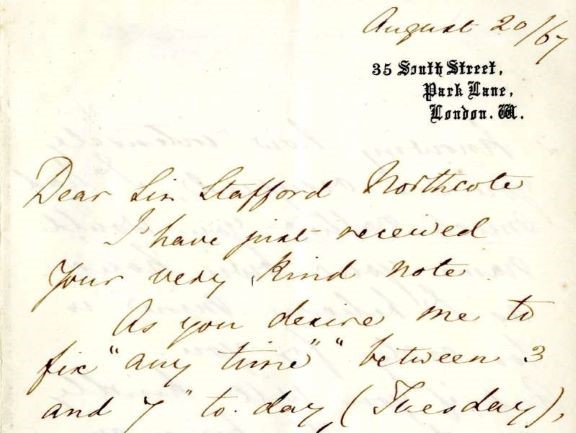 August 20/67
35 South Street,
Park Lane,
London. W.
Dear Sir Stafford Northcote
I have just received
your very kind note.
As you desire me to
fix "any time" "between 3
and 7" to-day, (Tuesday),